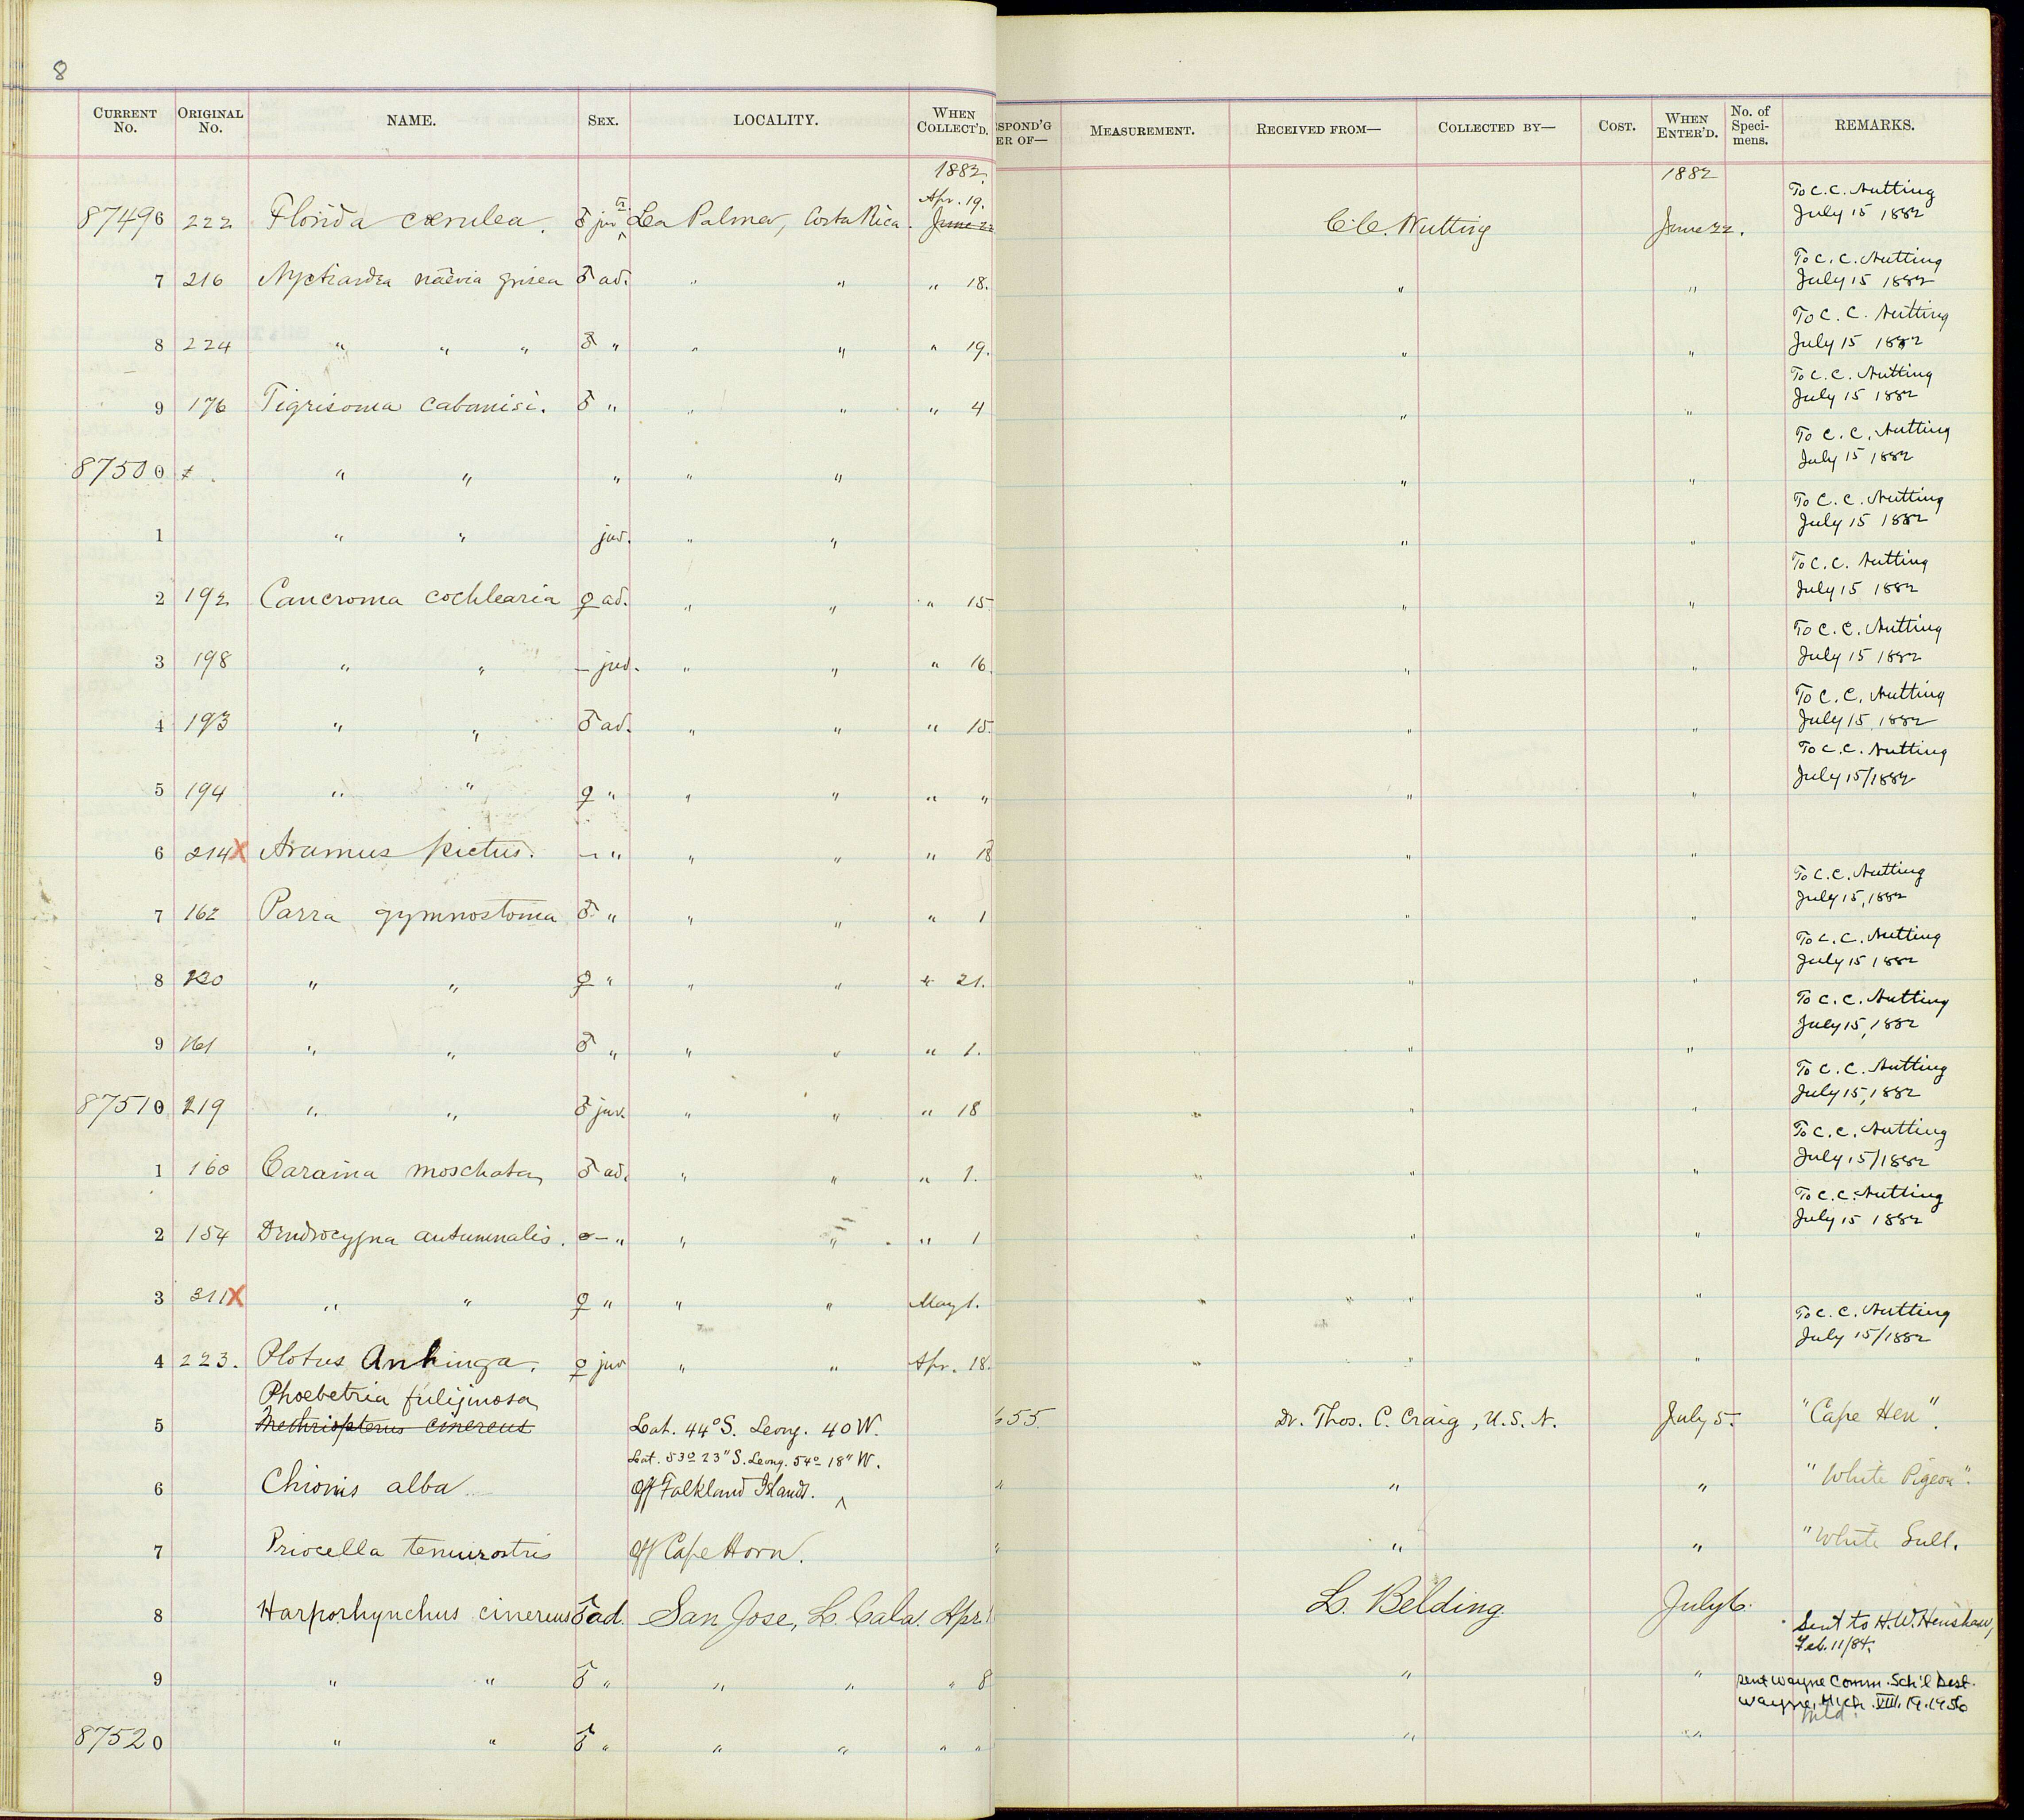 8
CURRENT No. ORIGINAL No. NAME. SEX. LOCALITY. WHEN COLLECT'D. SPOND'G ER OF— MEASUREMENT. RECEIVED FROM— COLLECTED BY— COST. WHEN ENTER'D. No. of Speci- mens. REMARKS.
1882. 1882
87496 222 Florida cærulea. ♂ juv La Palma, Costa Rica. Apr. 19. June 22 C.C. Nutting June 22. To C.C. Nutting July 15 1882
7 216 Nyctiardea nævia grisea ♂ ad. " " " 18. " " To C.C. Nutting July 15 1882
8 224 " " " ♂ " " " " 19. " " To C.C. Nutting July 15 1882
9 176 Tigrisoma cabanisi. ♂ " " " " 4 " " To C.C. Nutting July 15 1882
87500 " " " " " " " To C.C. Nutting July 15 1882
1 " " juv. " " " " To C.C. Nutting July 15 1882
2 192 Cancroma cochlearia ♀ ad. " " " 15 " " To C.C. Nutting July 15 1882
3 198 " " – juv. " " " 16. " " To C.C. Nutting July 15 1882
4 193 " " ♂ ad. " " " 15. " " To C.C. Nutting July 15, 1882
5 194 " " ♀ " " " " " " " To C.C. Nutting July 15/1882
6 214 X Aramus pictus. – " " " " 18 " "
7 162 Parra gymnostoma ♂ " " " " 1 " " To C.C. Nutting July 15, 1882
8 " " ♀ " " " " 21. " " To C.C. Nutting July 15 1882
9 161 " " ♂ " " " " 1. " " To C.C. Nutting July 15, 1882
87510 219 " " ♂ juv. " " " 18 " " To C.C. Nutting July 15, 1882
1 160 Caraina moschata ♂ ad. " " " 1. " " To C.C. Nutting July 15/1882
2 154 Dendrocygna autumnalis. – " " " " 1 " " To C.C. Nutting July 15 1882
3 311 X " " ♀ " " " May 1. " "
4 223. Plotus Anhinga. ♀ juv " " Apr. 18. " " To C.C. Nutting July 15/1882
Phoebetria fuliginosa
5 cinereus Lat. 44° S. Long. 40 W. 655 Dr. Thos. C. Craig, U.S.N. July 5. "Cape Hen".
Lat. 53° 23" S. Long. 54° 18" W.
6 Chionis alba off Falkland Islands. ^ " " " "White Pigeon".
7 Priocella tenuirostris off Cape Horn. " " " "White Gull.
8 Harporhynchus cinereus ♂ ad. San Jose, L. Cala. Apr. L. Belding July 6. Sent to H.W. Henshaw, Feb. 11/84.
9 " " ♂ " " " " 8 " " Sent Wayne Comm. Sch'l Dest. Wayne, Mich. VIII.19.1956
87520 " " ♂ " " " " " " "